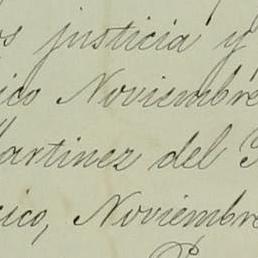 os justicia y
ico Noviembre
Martinez del
xico, Noviembre